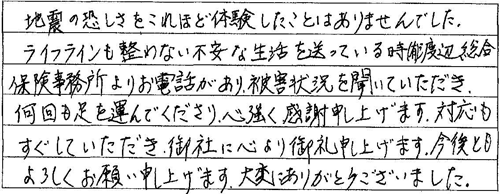 地震の恐しさをこれほど体験したことはありませんでした.
ライフラインも整わない不安な生活を送っている時、渡辺総合
保険事務所よりお電話があり、被害状況を聞いていただき.
何回も足を運んでくださり、心強く感謝申し上げます.対応も
すぐしていただき、御社に心より御礼申し上げます.今後とも
よろしくお願い申し上げます.大変にありがとうございました.